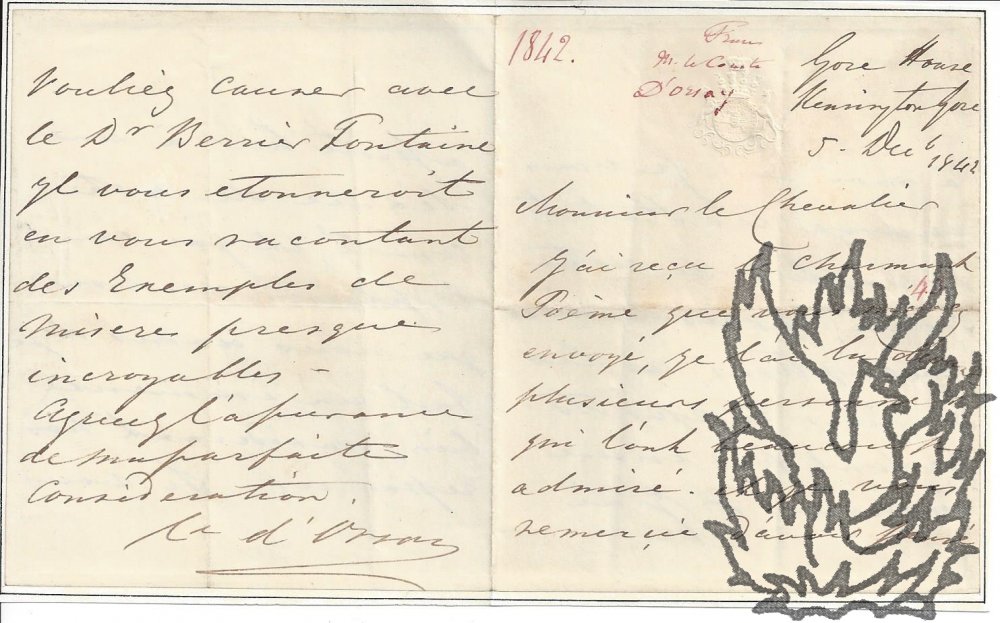 vouliez causer avec
le Dr Berrier Fontaine
yl vous etonneroit
en vous racontant
des Exemples de
misere presque
incroyables -
Agreez l'assurance
de ma parfaite
Consideration.
Cte d'Orsay
1842.
From
Mr. le Comte
D'orsay
Gore House
Kensington Gore
5. Decb 1842
Monsieur le Chevalier
J'ai reçu le charmant
Poëme que vous
envoyé, je l'ai lu
plusieurs personnes
qui l'ont beaucoup
admiré. et je vous
remerçie d'avoir